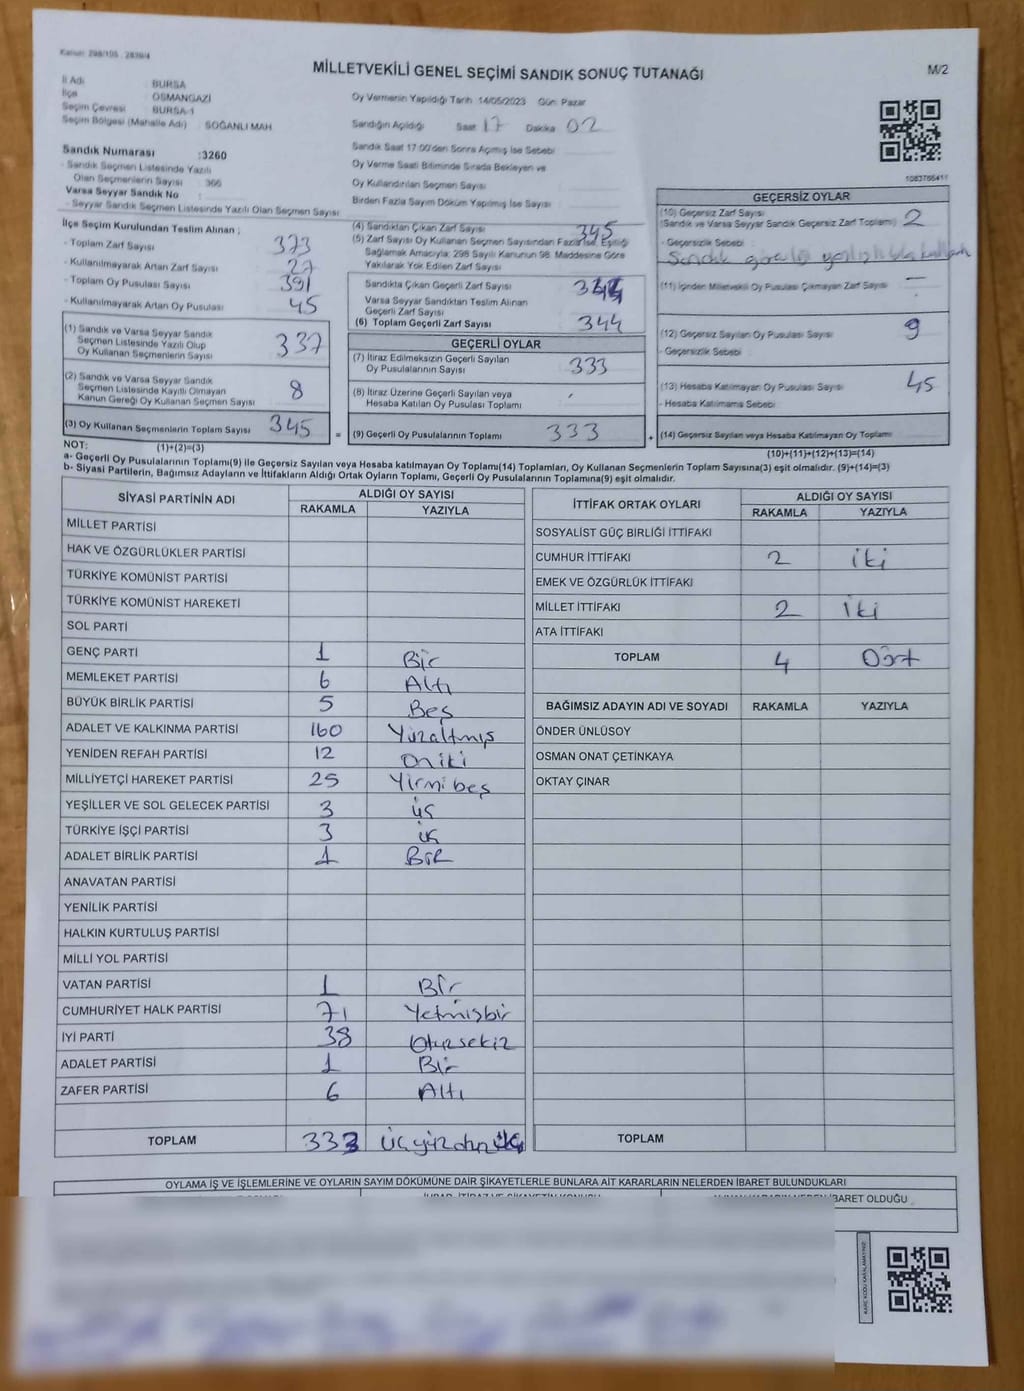 Kanun: 298/105 , 2839/4
MİLLETVEKİLİ GENEL SEÇİMİ SANDIK SONUÇ TUTANAĞI
M/2
İl Adı : BURSA
İlçe : OSMANGAZİ
Seçim Çevresi : BURSA-1
Seçim Bölgesi (Mahalle Adı) : SOĞANLI MAH
Sandık Numarası :3260
- Sandık Seçmen Listesinde Yazılı
Olan Seçmenlerin Sayısı : 366
Varsa Seyyar Sandık No :
- Seyyar Sandık Seçmen Listesinde Yazılı Olan Seçmen Sayısı :
Oy Vermenin Yapıldığı Tarih 14/05/2023 Gün: Pazar
Sandığın Açıldığı Saat 17 Dakika 02
Sandık Saat 17:00'den Sonra Açılmış İse Sebebi
Oy Verme Saati Bitiminde Sırada Bekleyen ve
Oy Kullandırılan Seçmen Sayısı
Birden Fazla Sayım Döküm Yapılmış İse Sayısı
1083766411
İlçe Seçim Kurulundan Teslim Alınan ;
- Toplam Zarf Sayısı 373
- Kullanılmayarak Artan Zarf Sayısı 27
- Toplam Oy Pusulası Sayısı 391
- Kullanılmayarak Artan Oy Pusulası 45
(1) Sandık ve Varsa Seyyar Sandık
Seçmen Listesinde Yazılı Olup
Oy Kullanan Seçmenlerin Sayısı 337
(2) Sandık ve Varsa Seyyar Sandık
Seçmen Listesinde Kayıtlı Olmayan
Kanun Gereği Oy Kullanan Seçmen Sayısı 8
(3) Oy Kullanan Seçmenlerin Toplam Sayısı 345 =
(4) Sandıktan Çıkan Zarf Sayısı 345
(5) Zarf Sayısı Oy Kullanan Seçmen Sayısından Fazla İse, Eşitliği
Sağlamak Amacıyla; 298 Sayılı Kanunun 98. Maddesine Göre
Yakılarak Yok Edilen Zarf Sayısı
Sandıkta Çıkan Geçerli Zarf Sayısı 344
Varsa Seyyar Sandıktan Teslim Alınan
Geçerli Zarf Sayısı
(6) Toplam Geçerli Zarf Sayısı 344
GEÇERLİ OYLAR
(7) İtiraz Edilmeksizin Geçerli Sayılan
Oy Pusulalarının Sayısı 333
(8) İtiraz Üzerine Geçerli Sayılan veya
Hesaba Katılan Oy Pusulası Toplamı
(9) Geçerli Oy Pusulalarının Toplamı 333 +
GEÇERSİZ OYLAR
(10) Geçersiz Zarf Sayısı
(Sandık ve Varsa Seyyar Sandık Geçersiz Zarf Toplamı) 2
- Geçersizlik Sebebi
Sandık görevlisi
(11) İçinden Milletvekili Oy Pusulası Çıkmayan Zarf Sayısı —
(12) Geçersiz Sayılan Oy Pusulası Sayısı 9
- Geçersizlik Sebebi
(13) Hesaba Katılmayan Oy Pusulası Sayısı 45
- Hesaba Katılmama Sebebi
(14) Geçersiz Sayılan veya Hesaba Katılmayan Oy Toplamı
NOT: (1)+(2)=(3) (10)+(11)+(12)+(13)=(14)
a- Geçerli Oy Pusulalarının Toplamı(9) ile Geçersiz Sayılan veya Hesaba katılmayan Oy Toplamı(14) Toplamları, Oy Kullanan Seçmenlerin Toplam Sayısına(3) eşit olmalıdır. (9)+(14)=(3)
b- Siyasi Partilerin, Bağımsız Adayların ve İttifakların Aldığı Ortak Oyların Toplamı, Geçerli Oy Pusulalarının Toplamına(9) eşit olmalıdır.
SİYASİ PARTİNİN ADI ALDIĞI OY SAYISI
RAKAMLA YAZIYLA
MİLLET PARTİSİ
HAK VE ÖZGÜRLÜKLER PARTİSİ
TÜRKİYE KOMÜNİST PARTİSİ
TÜRKİYE KOMÜNİST HAREKETİ
SOL PARTİ
GENÇ PARTİ 1 Bir
MEMLEKET PARTİSİ 6 Altı
BÜYÜK BİRLİK PARTİSİ 5 Beş
ADALET VE KALKINMA PARTİSİ 160 Yüzaltmış
YENİDEN REFAH PARTİSİ 12 Oniki
MİLLİYETÇİ HAREKET PARTİSİ 25 Yirmibeş
YEŞİLLER VE SOL GELECEK PARTİSİ 3 üç
TÜRKİYE İŞÇİ PARTİSİ 3 üç
ADALET BİRLİK PARTİSİ 1 Bir
ANAVATAN PARTİSİ
YENİLİK PARTİSİ
HALKIN KURTULUŞ PARTİSİ
MİLLİ YOL PARTİSİ
VATAN PARTİSİ 1 Bir
CUMHURİYET HALK PARTİSİ 71 Yetmişbir
İYİ PARTİ 38 Otuzsekiz
ADALET PARTİSİ 1 Bir
ZAFER PARTİSİ 6 Altı
TOPLAM 333 Üçyüzotuzüç
İTTİFAK ORTAK OYLARI ALDIĞI OY SAYISI
RAKAMLA YAZIYLA
SOSYALİST GÜÇ BİRLİĞİ İTTİFAKI
CUMHUR İTTİFAKI 2 iki
EMEK VE ÖZGÜRLÜK İTTİFAKI
MİLLET İTTİFAKI 2 iki
ATA İTTİFAKI
TOPLAM 4 Dört
BAĞIMSIZ ADAYIN ADI VE SOYADI RAKAMLA YAZIYLA
ÖNDER ÜNLÜSOY
OSMAN ONAT ÇETİNKAYA
OKTAY ÇINAR
TOPLAM
OYLAMA İŞ VE İŞLEMLERİNE VE OYLARIN SAYIM DÖKÜMÜNE DAİR ŞİKAYETLERLE BUNLARA AİT KARARLARIN NELERDEN İBARET BULUNDUKLARI
İBARET OLDUĞU
KARE KODU KARALAMAYINIZ